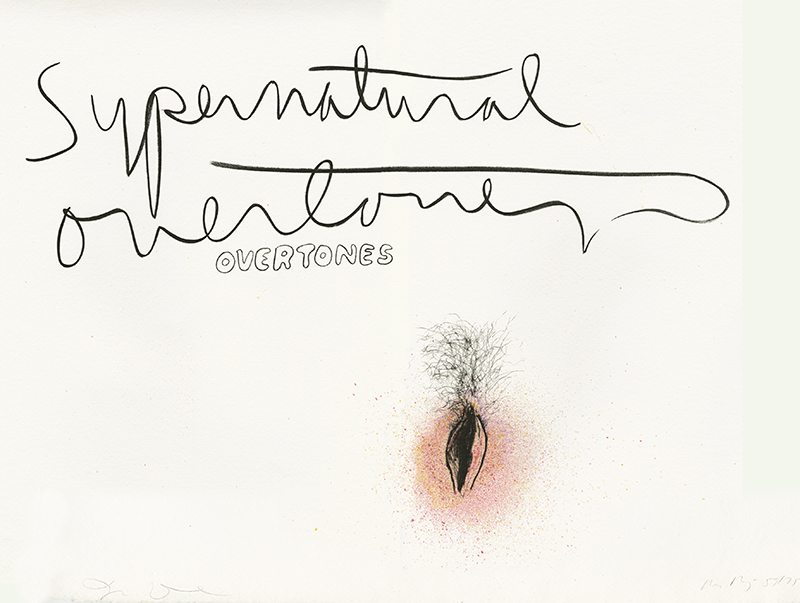 Supernatural
overtones
OVERTONES